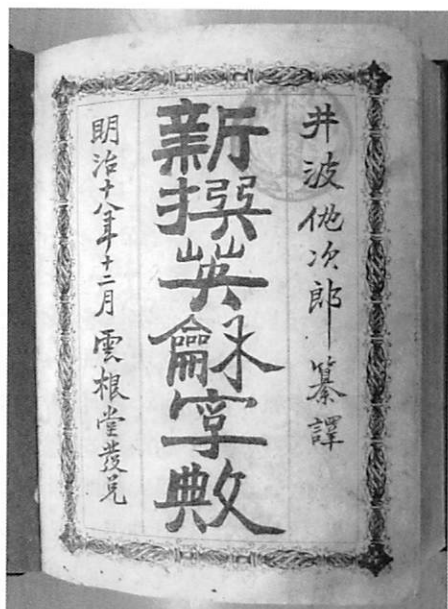 井波他次郎纂譯
新撰英龢字典
明治十八年十二月雲根堂發兌